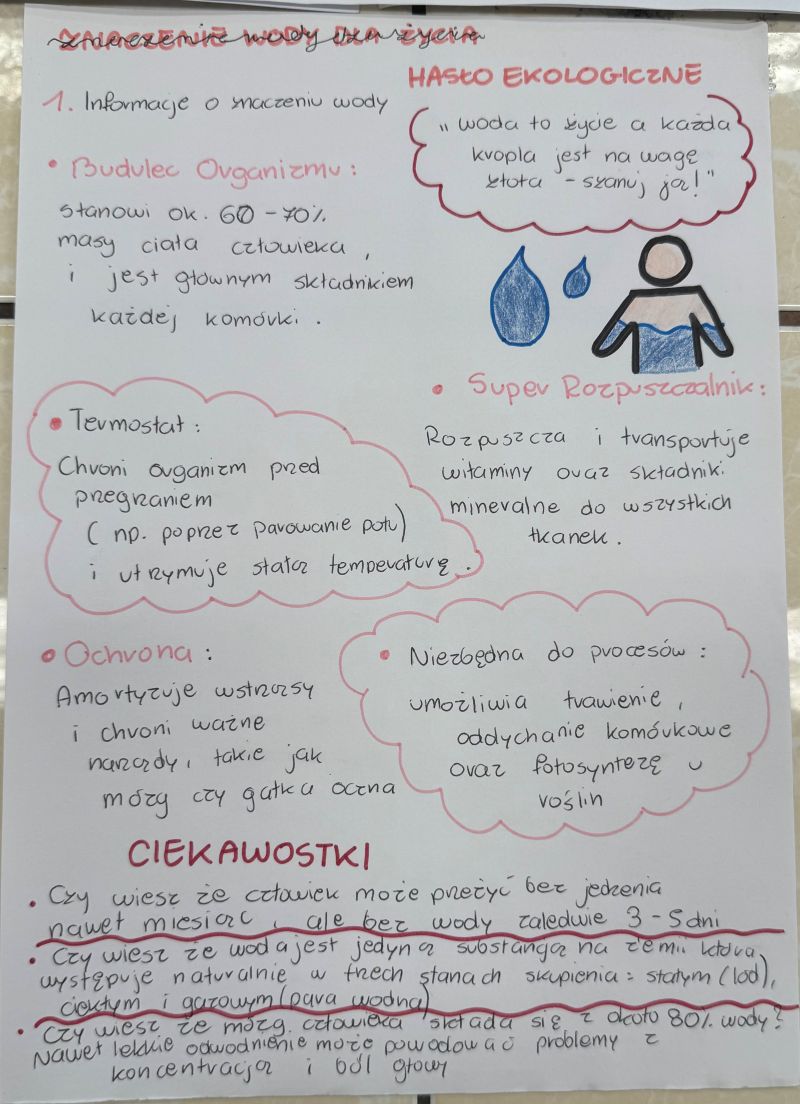 ZNACZENIE WODY DLA ŻYCIA
HASŁO EKOLOGICZNE
1. Informacje o znaczeniu wody
„ woda to życie a każda
kropla jest na wagę
złota - szanuj ją!"
• Budulec Organizmu:
stanowi ok. 60-70%
masy ciała człowieka,
i jest głównym składnikiem
każdej komórki.
• Super Rozpuszczalnik:
Rozpuszcza i transportuje
witaminy oraz składniki
mineralne do wszystkich
tkanek.
• Termostat:
Chroni organizm przed
przegrzaniem
( np. poprzez parowanie potu)
i utrzymuje stałą temperaturę.
• Ochrona:
Amortyzuje wstrząsy
i chroni ważne
narządy, takie jak
mózg czy gałka oczna
• Niezbędna do procesów:
umożliwia trawienie,
oddychanie komórkowe
oraz fotosyntezę u
roślin
CIEKAWOSTKI
• Czy wiesz że człowiek może przeżyć bez jedzenia
nawet miesiąc, ale bez wody zaledwie 3-5 dni
• Czy wiesz że woda jest jedyną substancją na ziemii która
występuje naturalnie w trzech stanach skupienia: stałym (lód),
ciekłym i gazowym (para wodna)
• Czy wiesz że mózg człowieka składa się z około 80% wody?
Nawet lekkie odwodnienie może powodować problemy z
koncentracją i ból głowy